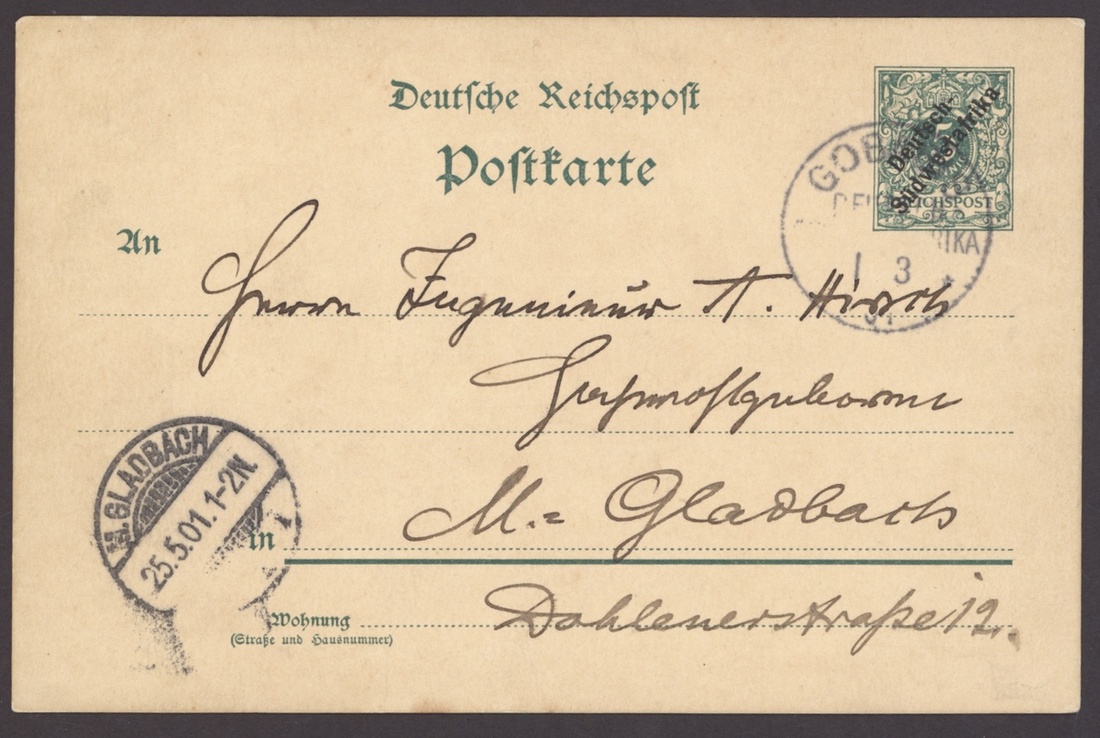 Deutsche Reichspost
Postkarte
5
Deutsch-
Südwestafrika
REICHSPOST
GOB
1 3
An
Herrn Ingenieur A. Hirsch
M.= Gladbach
in
Dahlenerstraße 12.
Wohnung
(Straße und Hausnummer)
M. GLADBACH
25.5.01. 1-2N.